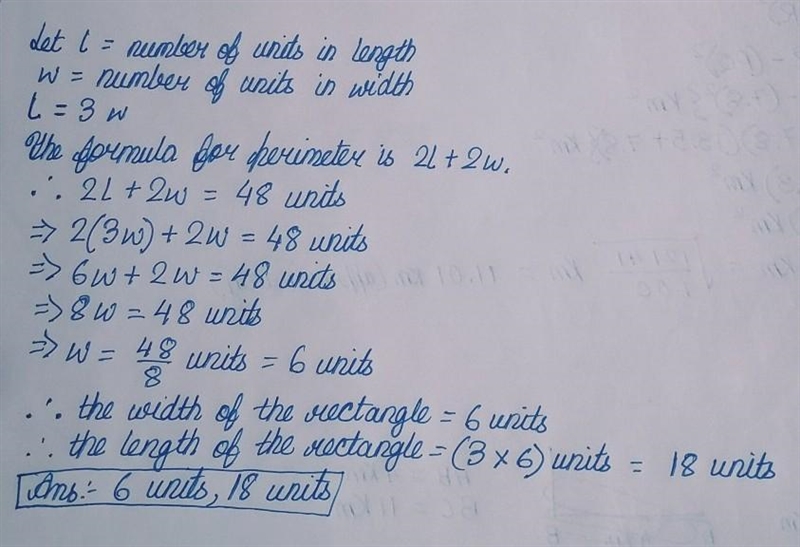 Let l = number of units in length
w = number of units in width
l = 3 w
The formula for perimeter is 2l + 2w.
∴ 2l + 2w = 48 units
=> 2(3w) + 2w = 48 units
=> 6w + 2w = 48 units
=> 8w = 48 units
=> w = 48/8 units = 6 units
∴ the width of the rectangle = 6 units
∴ the length of the rectangle = (3 × 6) units = 18 units
Ans:- 6 units, 18 units